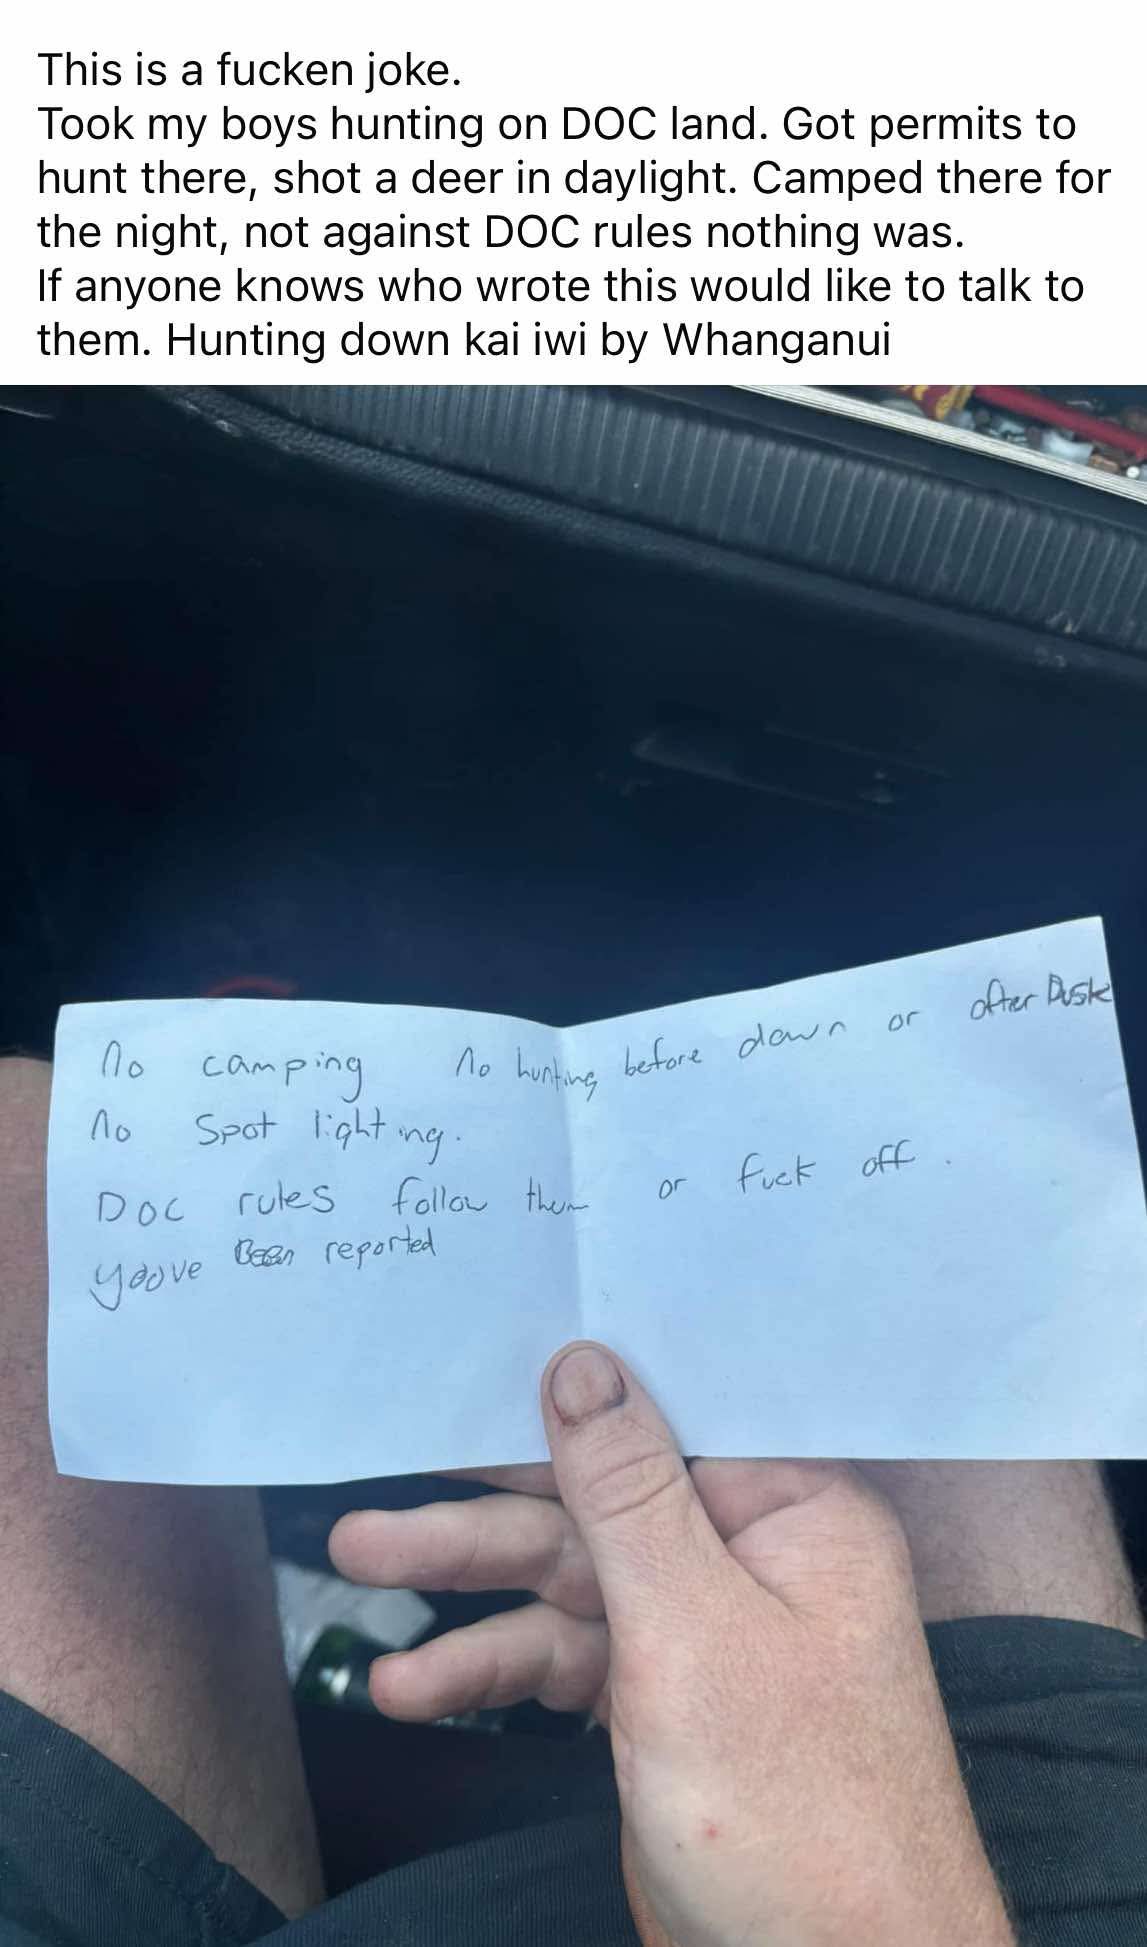 This is a fucken joke.
Took my boys hunting on DOC land. Got permits to
hunt there, shot a deer in daylight. Camped there for
the night, not against DOC rules nothing was.
If anyone knows who wrote this would like to talk to
them. Hunting down kai iwi by Whanganui
No camping No hunting before dawn or after Dusk
No Spot lighting.
DOC rules follow them or fuck off.
yoove Been reported